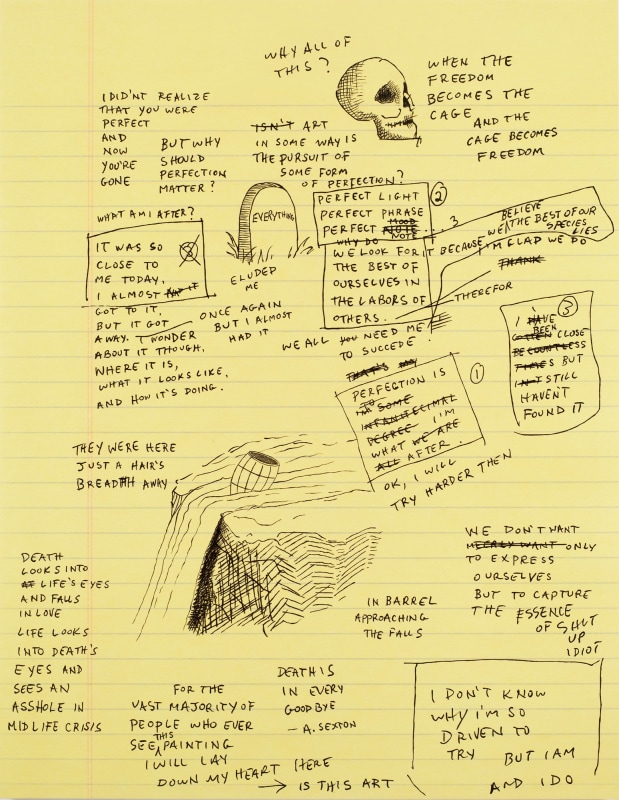 WHY ALL OF
THIS?
WHEN THE
FREEDOM
BECOMES THE
CAGE
AND THE
CAGE BECOMES
FREEDOM
I DID'NT REALIZE
THAT YOU WERE
PERFECT
AND
NOW
YOU'RE
GONE
BUT WHY
SHOULD
PERFECTION
MATTER?
ISN'T ART
IN SOME WAY IS
THE PURSUIT OF
SOME FORM
OF PERFECTION?
WHAT AM I AFTER?
IT WAS SO
CLOSE TO
ME TODAY,
I ALMOST HAD IT
GOT TO IT,
BUT IT GOT
AWAY. I WONDER
ABOUT IT THOUGH,
WHERE IT IS,
WHAT IT LOOKS LIKE,
AND HOW IT'S DOING.
EVERYTHING
ELUDED
ME
ONCE AGAIN
BUT I ALMOST
HAD IT
2
PERFECT LIGHT
PERFECT PHRASE
MOOD
PERFECT NOTE
NOTE
3
WHY DO
WE LOOK FOR IT BECAUSE
THE BEST OF
OURSELVES IN
THE LABORS OF
OTHERS.
BELIEVE
WE THE BEST OF OUR
SPECIES
LIES
I'M GLAD WE DO
THANK
THEREFOR
WE ALL YOU NEED ME
TO SUCCEDE.
THAT'S MY
1
PERFECTION IS
TO
I'M SOME
INFANITECIMAL
DEGREE I'M
WHAT WE ARE
ALL AFTER.
OK, I WILL
TRY HARDER THEN
3
I HAVE
BEEN
GOTTEN CLOSE
BE COUNTLESS
TIMES BUT
IN'T STILL
HAVEN'T
FOUND IT
THEY WERE HERE
JUST A HAIR'S
BREADTH AWAY
IN BARREL
APPROACHING
THE FALLS
WE DON'T WANT
MEERLY WANT ONLY
TO EXPRESS
OURSELVES
BUT TO CAPTURE
THE ESSENCE
OF SHUT
UP
IDIOT
DEATH
LOOKS INTO
AT LIFE'S EYES
AND FALLS
IN LOVE
LIFE LOOKS
INTO DEATH'S
EYES AND
SEES AN
ASSHOLE IN
MID LIFE CRISIS
FOR THE
VAST MAJORITY OF
PEOPLE WHO EVER
THIS
SEE PAINTING
I WILL LAY
DOWN MY HEART HERE
→ IS THIS ART
DEATH IS
IN EVERY
GOODBYE
— A. SEXTON
I DON'T KNOW
WHY I'M SO
DRIVEN TO
TRY BUT I AM
AND I DO